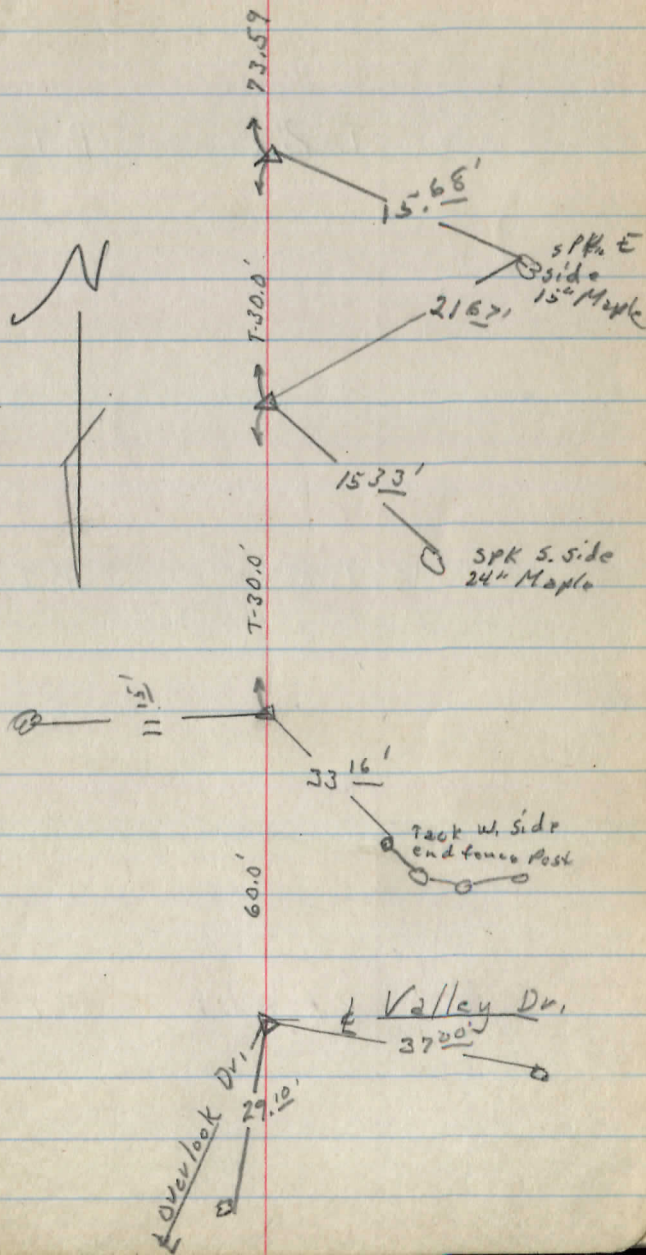 73.59
15.68'
N
spk. E
side
15" Maple
T-30.0'
21 67'
15 33'
spk s. side
24" Maple
T-30.0'
33 16'
Tack w. side
end fence Post
60.0'
℄ Valley Dr.
37 00'
Overlook Dr.
29.10'